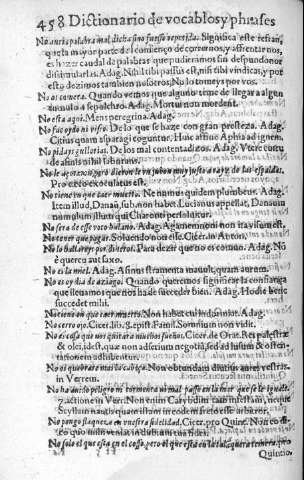 458 Dictionario de vocablos y phrases
No auría palabra mal dicha si no fuesse repetida. Significa este refran,
que la mayor parte del començo de corrernos, y affrentarnos,
es hazer caudal de palabras que pudieramos sin despundonor
dissimularlas. Adag. Nihil tibi passus est, nisi tibi vindicas, y por
esto dezimos tambien nosotros, No lo tomeys por vos.
No aí conorte. Quando vemos que alguno teme de llegar a algun
a sepolchro. Adag. Mortui non mordent.
No esta aquí. Mens peregrina. Adag.
No fue oydo ni visto. De lo que se haze con gran presteza. Adag.
Citius quam asparagi coquuntur. Huic affine Aphia ad ignem.
No pidays gullorias. De los mal contentadizos. Adag.
de asini
Pro exoculatus est.
No tiene vn que taer muerto. Ne nummus quidem plumbeus. Adag.
Item illud, Danaü, sub, non habet. Lucianus appellat, Danaum
nummulum illum qui Charoni persolvitur.
No sera de esse voto balano. Adag. Agamemnoni non ita visum est.
No tener que pagar. Soluendo non esse. Cicer. in Anton.
No lo ba por diserto. Para dezir que no es comun. Adag. Nõ
è quercu aut saxo.
No es la miel. Adag. Asinus stramenta mauult, quam aurum.
No es oy dia de aziago. Quando queremos significar la confiança
que lleuamos que nos ha de succeder bien. Adag. Hodie bene
succedet mihi.
No tiene en que caer muerto. Non habet cui Adag.
No cerro ojo. Cicer. lib. 8. epist. Famil. Somnium non vidit.
No es cosa que nos quitara nuestro sueño. Cicer. de Orat. Res palestræ
& olei, idest, quæ non ad seriam negotij, sed ad lusum & ostentationem
adhibentur.
No os quebrare mas la cabeça. Non obtundam diutius aures vestras.
in Verrem.
No ha auido peligro ni tormenta no mal passo en la mar que se le
7. action in Ver. Non enim Carybdim tam infestam, neque
Scyllam nautis quam istam in eodem freto esse arbitror.
No pongo flaquez a en vuestra fidelidad. Cicer. pro Quint. Non eo
co quo mihi veniat in dubium tua fides.
No solo el que esta en el cosso, pero el que esta en la
Quintio